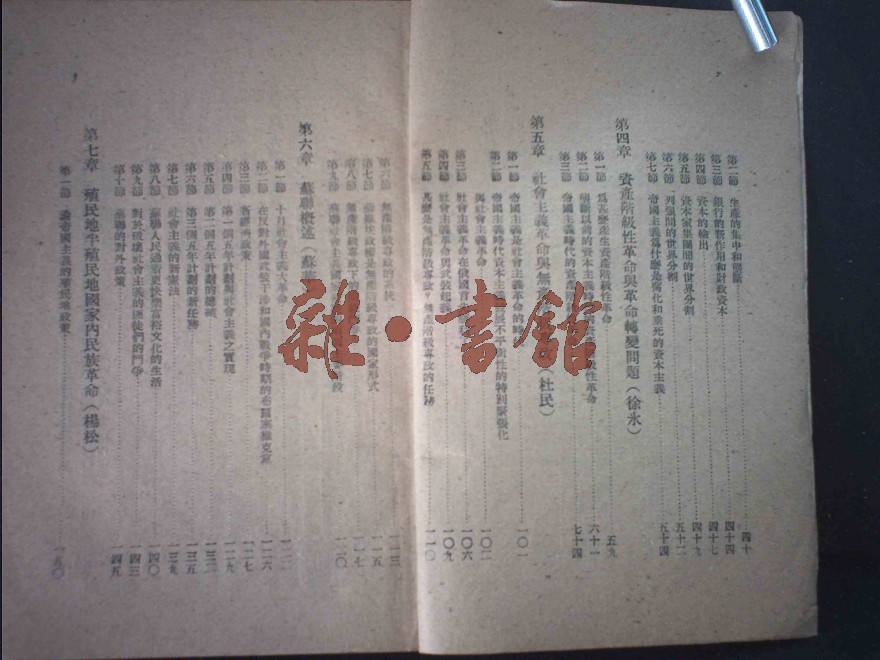 第二節 生產的集中和壟斷 四十
第三節 銀行的新作用和財政資本 四十四
第四節 資本的輸出 四十七
第五節 資本家集團間的世界分割 四十九
第六節 列強間的世界分割 五十一
第七節 帝國主義為什麼是腐化和垂死的資本主義 五十四
第四章 資產階級性革命與革命轉變問題（徐永） 五九
第一節 為甚麼產生資產階級性革命
第二節 帝國 以前的資本主義 性革命 六十一
第三節 帝國主義時代的資產階 七十四
第五章 社會主義革命與無 （杜民）
第一節 帝國主義是社會主義革命的時 一〇一
第二節 帝國主義時代資本主義 不平衡性的特別緊張化
與社會主義革命 一〇二
第三節 社會主義革命在俄國首 一〇六
第四節 社會主義革命與武裝起義 一〇九
第五節 甚麼是無產階級專政？無產階級專政的任務 一一〇
第六節 無產階級專政的系統 一一三
第七節 蘇維埃政權是無產階級專政的國家形式 一一五
第八節 無產階級專政下 一一七
第九節 蘇聯社會主義 階段 一二〇
第六章 蘇聯概述（蘇
第一節 十月社會主義大革命 一二二
第二節 在反對外國武裝干涉和國內戰爭時期的布爾塞維克黨 一二六
第三節 新經濟政策 一二七
第四節 第一個五年計劃與社會主義之實現 一二九
第五節 第二個五年計劃的總結 一三二
第六節 第三個五年計劃的新任務 一三五
第七節 社會主義的新憲法 一三九
第八節 蘇聯人民過着更快樂富裕文化的生活 一四〇
第九節 對於破壞社會主義的匪徒們的鬥爭 一四三
第十節 蘇聯的對外政策 一四五
第七章 殖民地半殖民地國家內民族革命（楊松）
第一節 論帝國主義的殖民地政策 一五〇
雜·書館